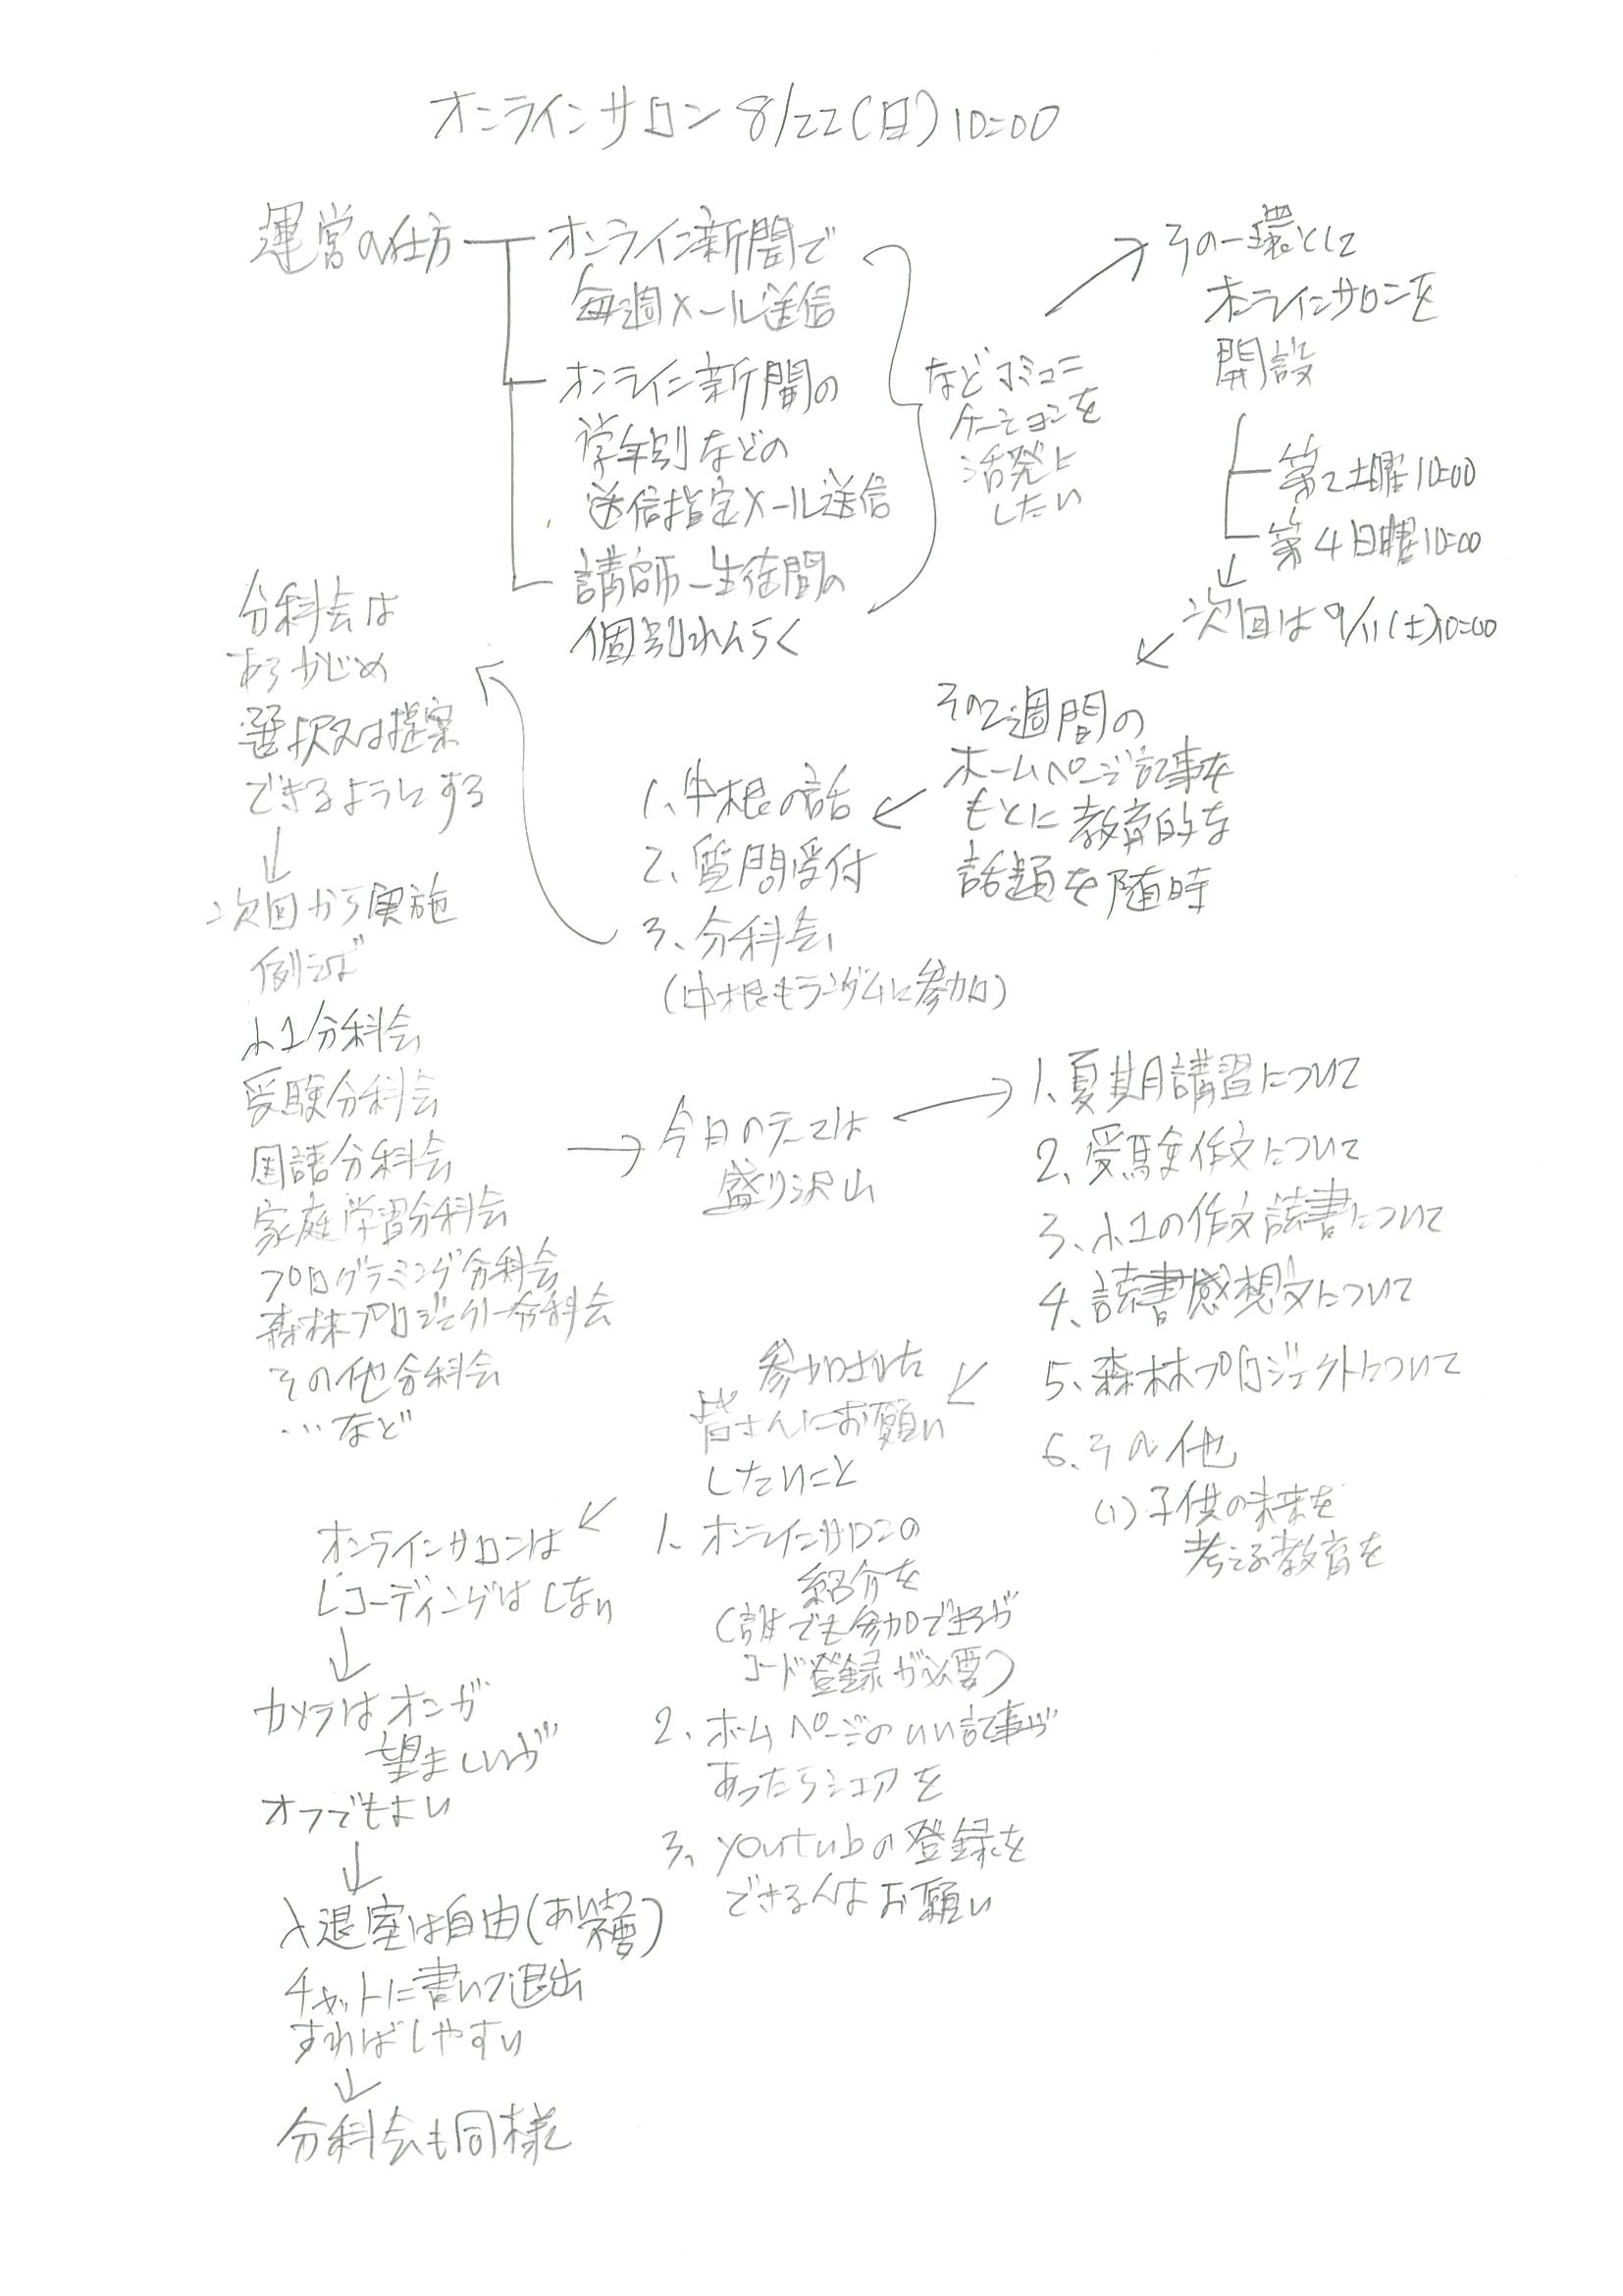 オンラインサロン 8/22(日)10:00
運営の仕方
オンライン新聞で
毎週メール送信
オンライン新聞の
学年別などの
送信指定メール送信
講師－生徒間の
個別れんらく
などコミュニ
ケーションを
活発に
したい
その一環として
オンラインサロンを
開設
第2土曜10:00
第4日曜10:00
次回は9/11(土)10:00
その2週間の
ホームページ記事を
もとに教育的な
話題を随時
1、中根の話
2、質問受付
3、分科会
(中根もランダムに参加)
分科会は
あらかじめ
選択又は提案
できるようにする
次回から実施
例えば
小1分科会
受験分科会
国語分科会
家庭学習分科会
プログラミング分科会
森林プロジェクト分科会
その他分科会
…など
今日のテーマは
盛り沢山
1、夏期講習について
2、受験作文について
3、小1の作文読書について
4、読書感想文について
5、森林プロジェクトについて
6、その他
(1)子供の未来を
考える教育を
参加された
皆さんにお願い
したいこと
1、オンラインサロンの
紹介を
(誰でも参加できるが
コード登録が必要)
2、ホームページのいい記事が
あったらシェアを
3、youtubの登録を
できる人はお願い
オンラインサロンは
レコーディングはしない
カメラはオンが
望ましいが
オフでもよい
入退室は自由(あいさつ
不要)
チャットに書いて退出
すればしやすい
分科会も同様